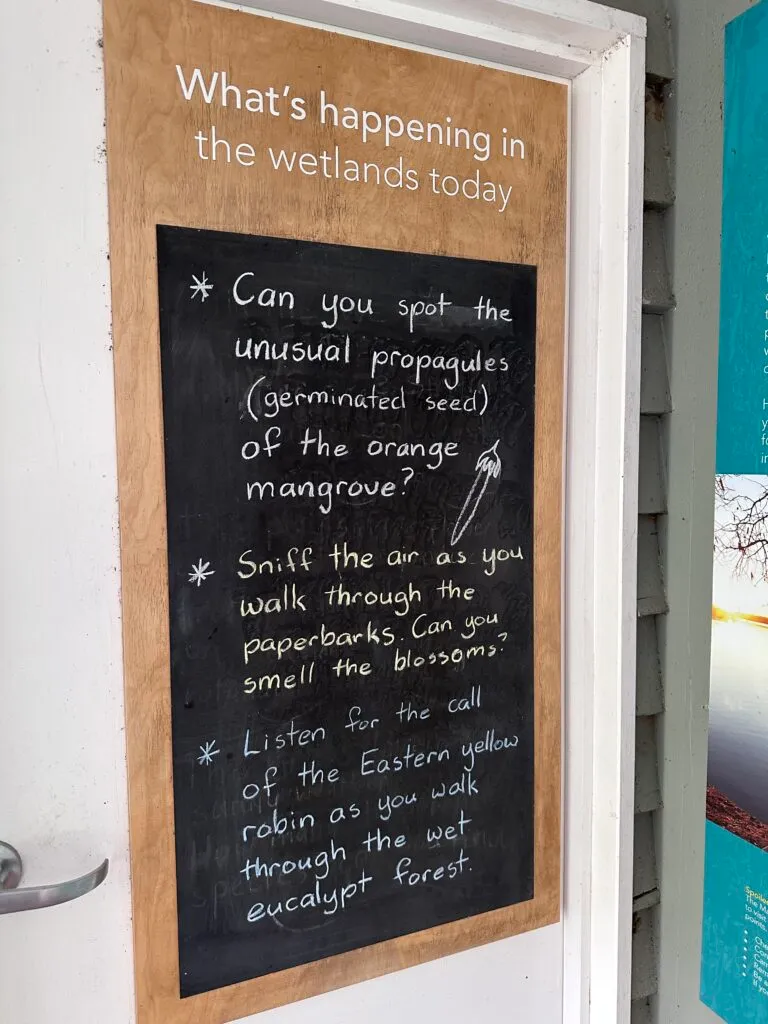 What's happening in
the wetlands today
* Can you spot the
unusual propagules
(germinated seed)
of the orange
mangrove?
* Sniff the air as you
walk through the
paperbarks. Can you
smell the blossoms?
* Listen for the call
of the Eastern yellow
robin as you walk
through the wet
eucalypt forest.
to visit
points.